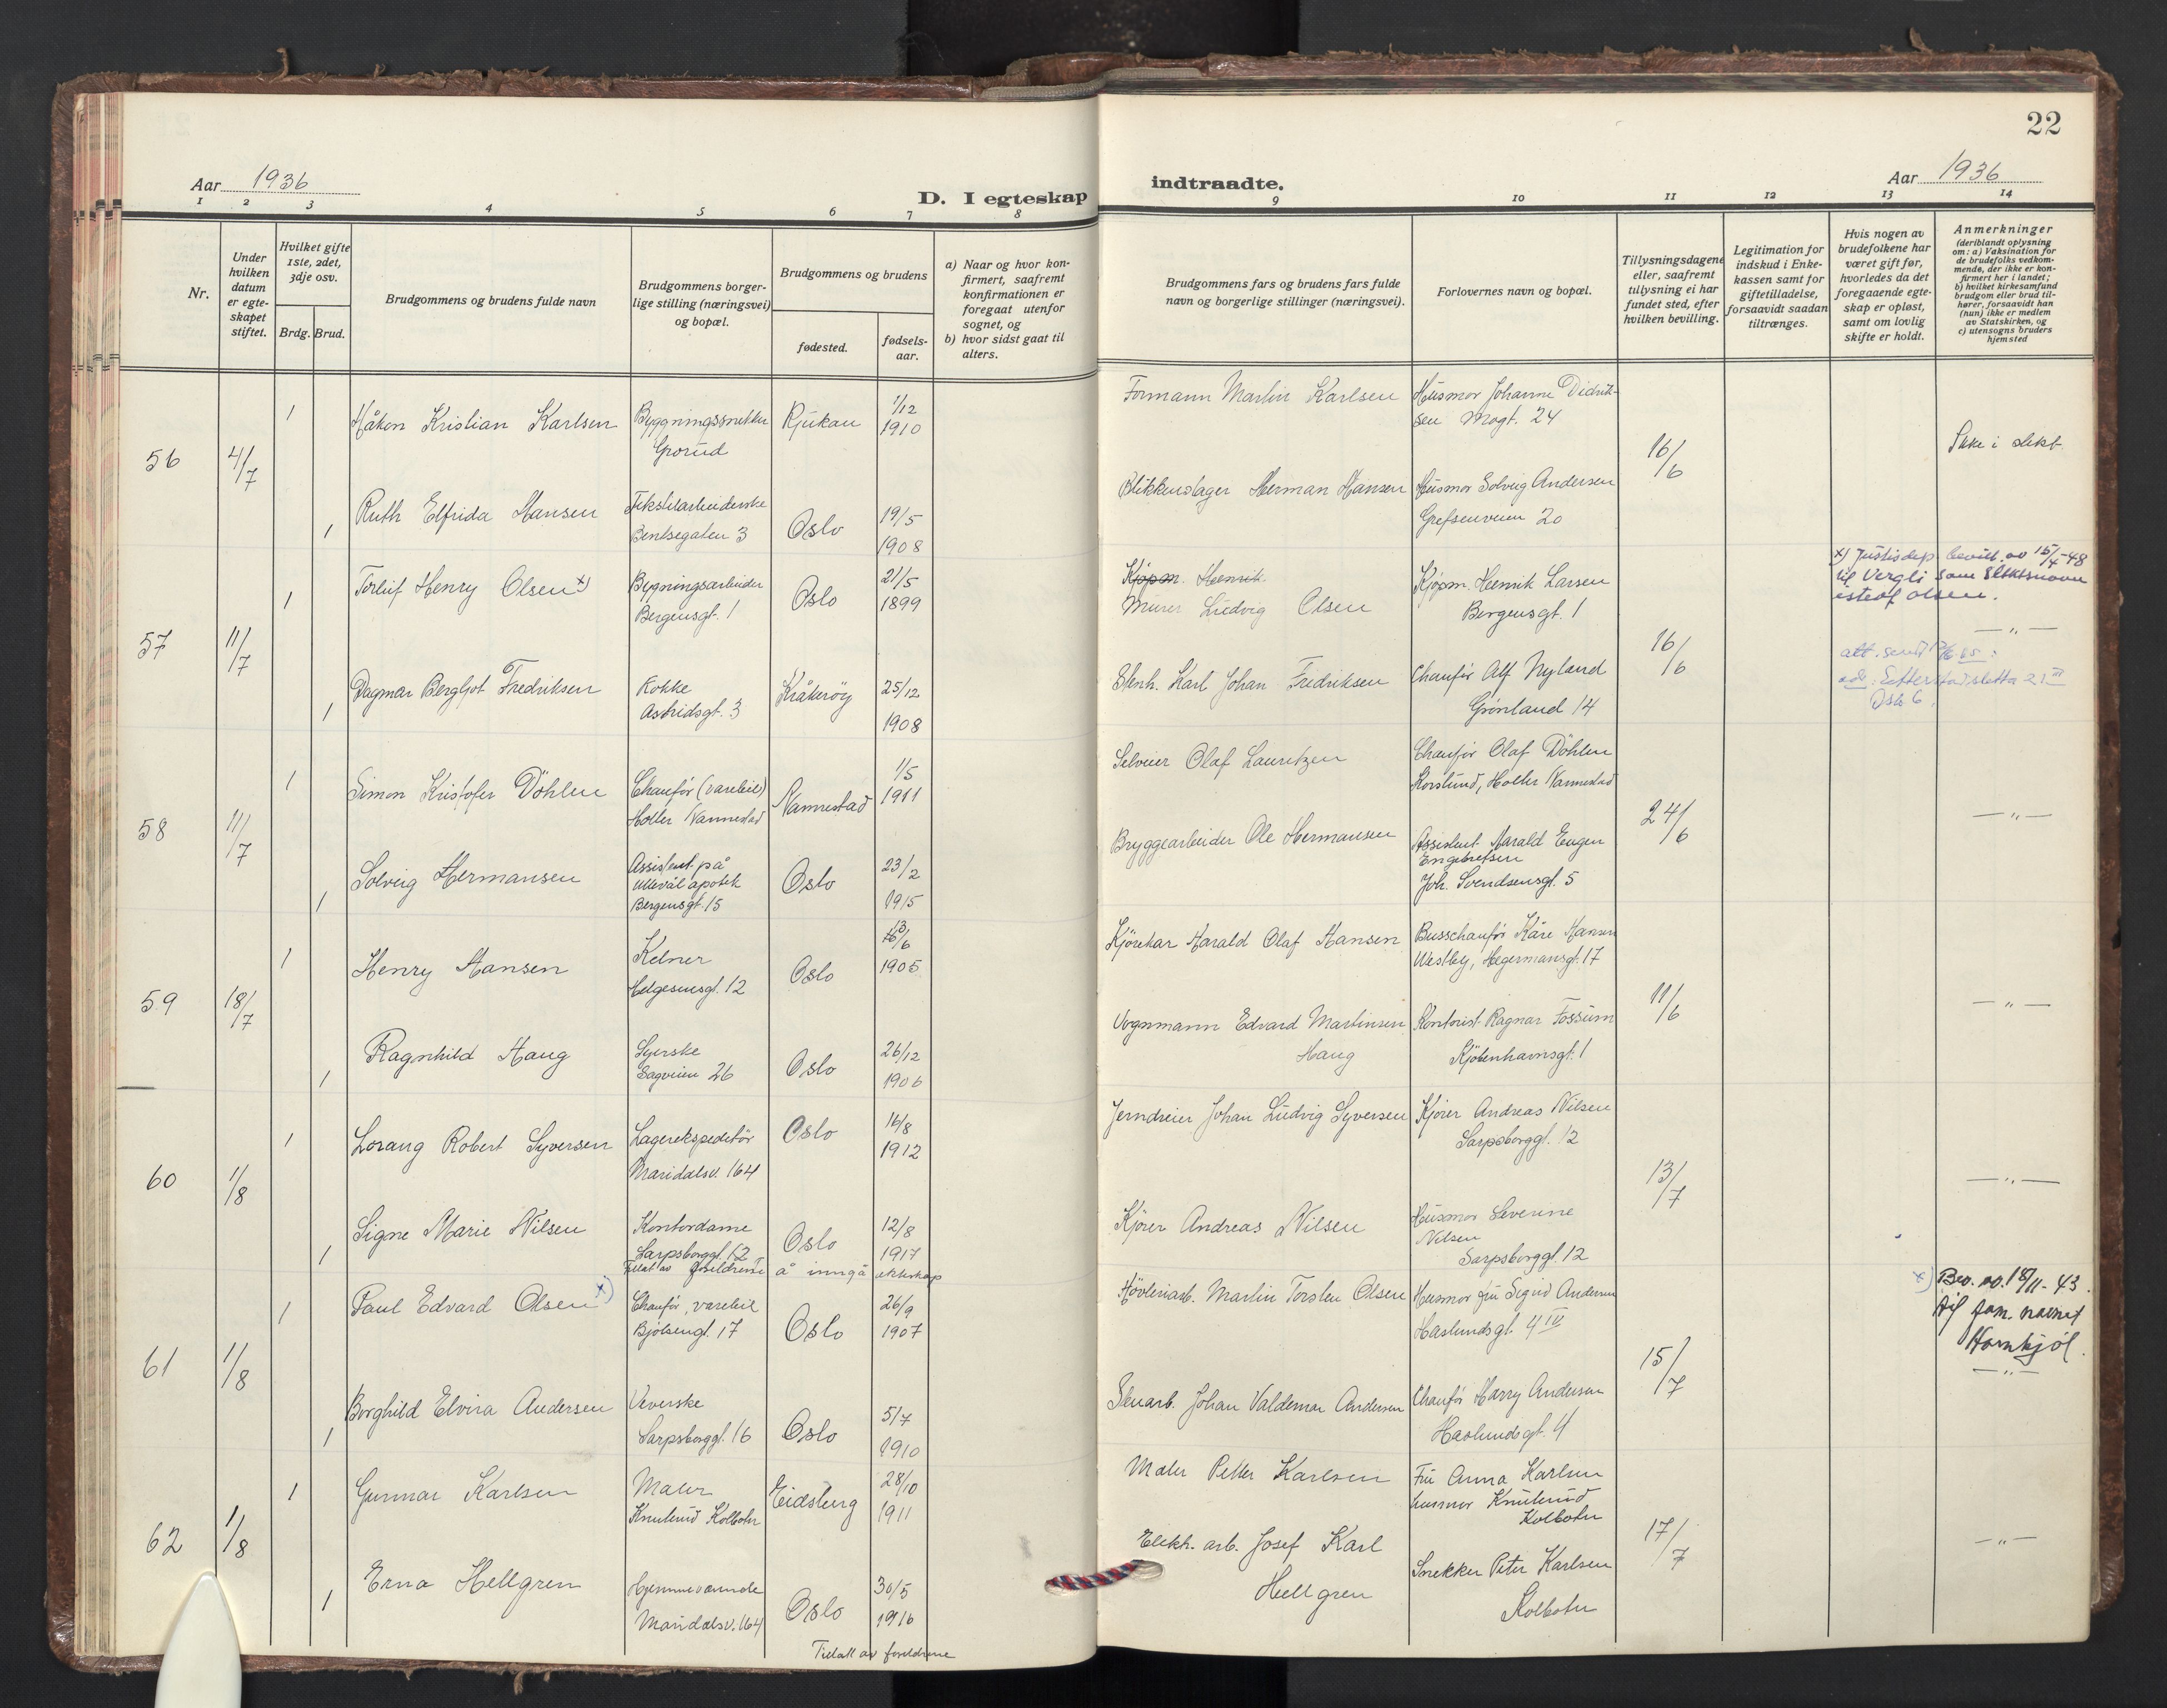 22
Aar 1936
D. I egteskap indtraadte.
Aar 1936
1 2 3 4 5 6 7 8 9 10 11 12 13 14
Nr.
Under
hvilken
datum
er egte-
skapet
stiftet.
Hvilket gifte
1ste, 2det,
3dje osv.
Brdg. Brud.
Brudgommens og brudens fulde navn
Brudgommens borger-
lige stilling (næringsvei)
og bopæl.
Brudgommens og brudens
fødested.
fødsels-
aar.
a) Naar og hvor kon-
firmert, saafremt
konfirmationen er
foregaat utenfor
sognet, og
b) hvor sidst gaat til
alters.
Brudgommens fars og brudens fars fulde
navn og borgerlige stillinger (næringsvei).
Forlovernes navn og bopæl.
Tillysningsdagene
eller, saafremt
tillysning ei har
fundet sted, efter
hvilken bevilling.
Legitimation for
indskud i Enke-
kassen samt for
giftetilladelse,
forsaavidt saadan
tiltrænges.
Hvis nogen av
brudefolkene har
været gift før,
hvorledes da det
foregaaende egte-
skap er opløst,
samt om lovlig
skifte er holdt.
Anmerkninger
(deriblandt oplysning
om: a) Vaksination for
de brudefolks vedkom-
mende, der ikke er kon-
firmert her i landet;
b) hvilket kirkesamfund
brudgom eller brud til-
hører, forsaavidt han
(hun) ikke er medlem
av Statskirken, og
c) utensogns bruders
hjemsted
56 4/7
1 Håkon Kristian Karlsen
Bygningssnekker
Grorud
Rjukan
1/12
1910
Formann Martin Karlsen
Husmor Johanne Didrik-
sen Mogt. 24
16/6
Ikke i slekt
1 Ruth Elfrida Hansen
Tekstilarbeiderske
Bentsegaten 3
Oslo
19/5
1908
Blikkenslager Herman Hansen
Husmor Solveig Andersen
Grefsenveien 20
57 11/7
1 Torleif Henry Olsen x)
Bygningsarbeider
Bergensgt. 1
Oslo
21/5
1899
Kjøpm. Henrik
Murer Ludvig Olsen
Kjøpm. Henrik Larsen
Bergensgt. 1
16/6
x) Justisdep bevill. av 15/4-48
til Vergli som slektsnavn
istedf. Olsen.
— " —
att. send
adr: Etterstadsletta
Oslo 6.
1 Dagmar Bergljot Fredriksen
Kokke
Astridsgt. 3
Kråkerøy
25/12
1908
Stenh. Karl Johan Fredriksen
Chaufør Alf Nyland
Grønland 14
58 11/7
1 Simon Kristofer Döhlen
Chaufør (varebil)
Holter Nannestad
Nannestad
1/5
1911
Selveier Olaf Lauritzen
Chaufør Olaf Döhlen
Korslund, Holter Nannestad
24/6
— " —
1 Solveig Hermansen
Assistent på
Ullevål apotek
Bergensgt. 15
Oslo
23/2
1915
Bryggearbeider Ole Hermansen
Assistent Harald Eugen
Engebretsen
Joh. Svendsensgt. 5
59 18/7
1 Henry Hansen
Kelner
Helgesensgt. 12
Oslo
1905
Kjørekar Harald Olaf Hansen
Busschaufør Kåre Hansen
Westby, Hegermansgt. 17
11/6
— " —
1 Ragnhild Haug
Syerske
Sagveien 26
Oslo
26/12
1906
Vognmann Edvard Martinsen
Haug
Kontorist Ragnar Fossum
Kjøbenhavnsgt. 1
60 1/8
1 Lorang Robert Syversen
Lagerekspeditør
Maridalsv. 164
Oslo
16/8
1912
Jerndreier Johan Ludvig Syversen
Kjører Andreas Nilsen
Sarpsborggt. 12
13/7
— " —
1 Signe Marie Nilsen
Kontordame
Sarpsborggt. 12
Oslo
12/8
1917
Tillat av foreldrene å inngå ekteskap
Kjører Andreas Nilsen
Husmor Severine
Nilsen
Sarpsborggt. 12
61 1/8
1 Paul Edvard Olsen x)
Chaufør, varebil
Bjølsengt. 17
Oslo
26/9
1907
Høvleriarb. Martin Torsten Olsen
Husmor fru Sigrid Andersen
Haslundsgt. 4 IV
15/7
x) Bev. av. 18/11-43.
til fam. navnet
Hornkjøl.
— " —
1 Borghild Elvira Andersen
Veverske
Sarpsborggt. 16
Oslo
5/7
1910
Stenarb. Johan Valdemar Andersen
Chaufør Harry Andersen
Haslundsgt. 4
62 1/8
1 Gunnar Karlsen
Maler
Knulerud Kolbotn
Eidsberg
28/10
1911
Maler Petter Karlsen
Fru Anna Karlsen
husmor Knulerud
Kolbotn
17/7
— " —
1 Erna Hellgren
Hjemmeværende
Maridalsv. 164
Oslo
30/5
1916
Elektr. arb. Josef Karl
Hellgren
Snekker Peter Karlsen
Kolbotn
Tillatt av foreldrene